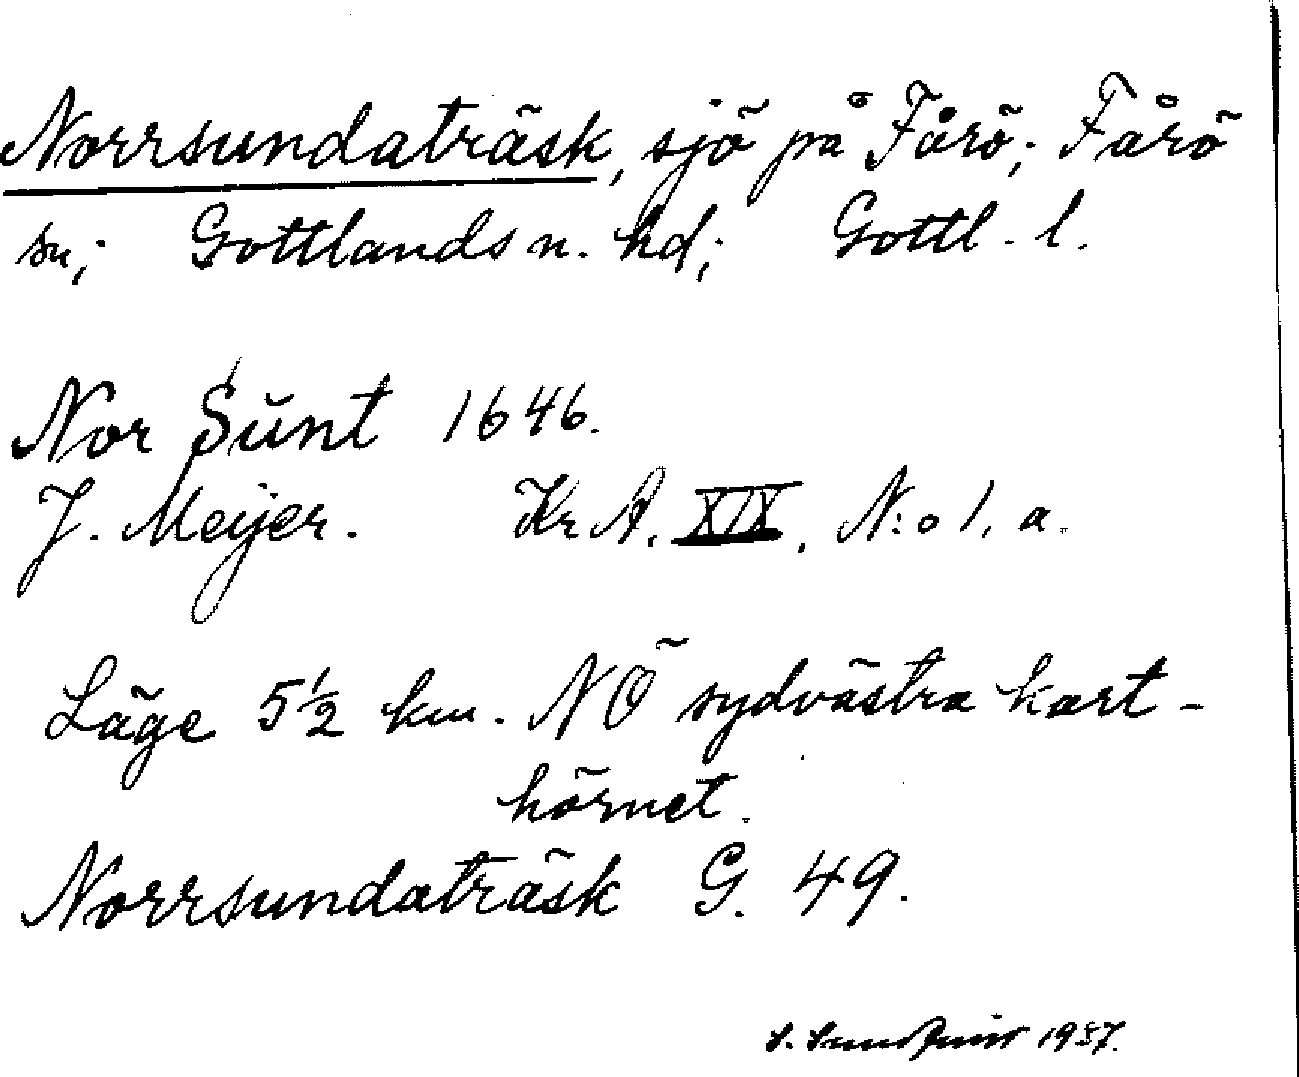 Norrsundaträsk, sjö på Fårö; Fårö
sn; Gottlands n. hd; Gottl. l.
Nor Sŭnt 1646.
J. Meijer. Kr A. XIX. N:o 1. a.
Läge 5 1/2 km. NÖ sydvästra kart-
hörnet.
Norrsundaträsk G. 49.
S. Sundquist 1937.